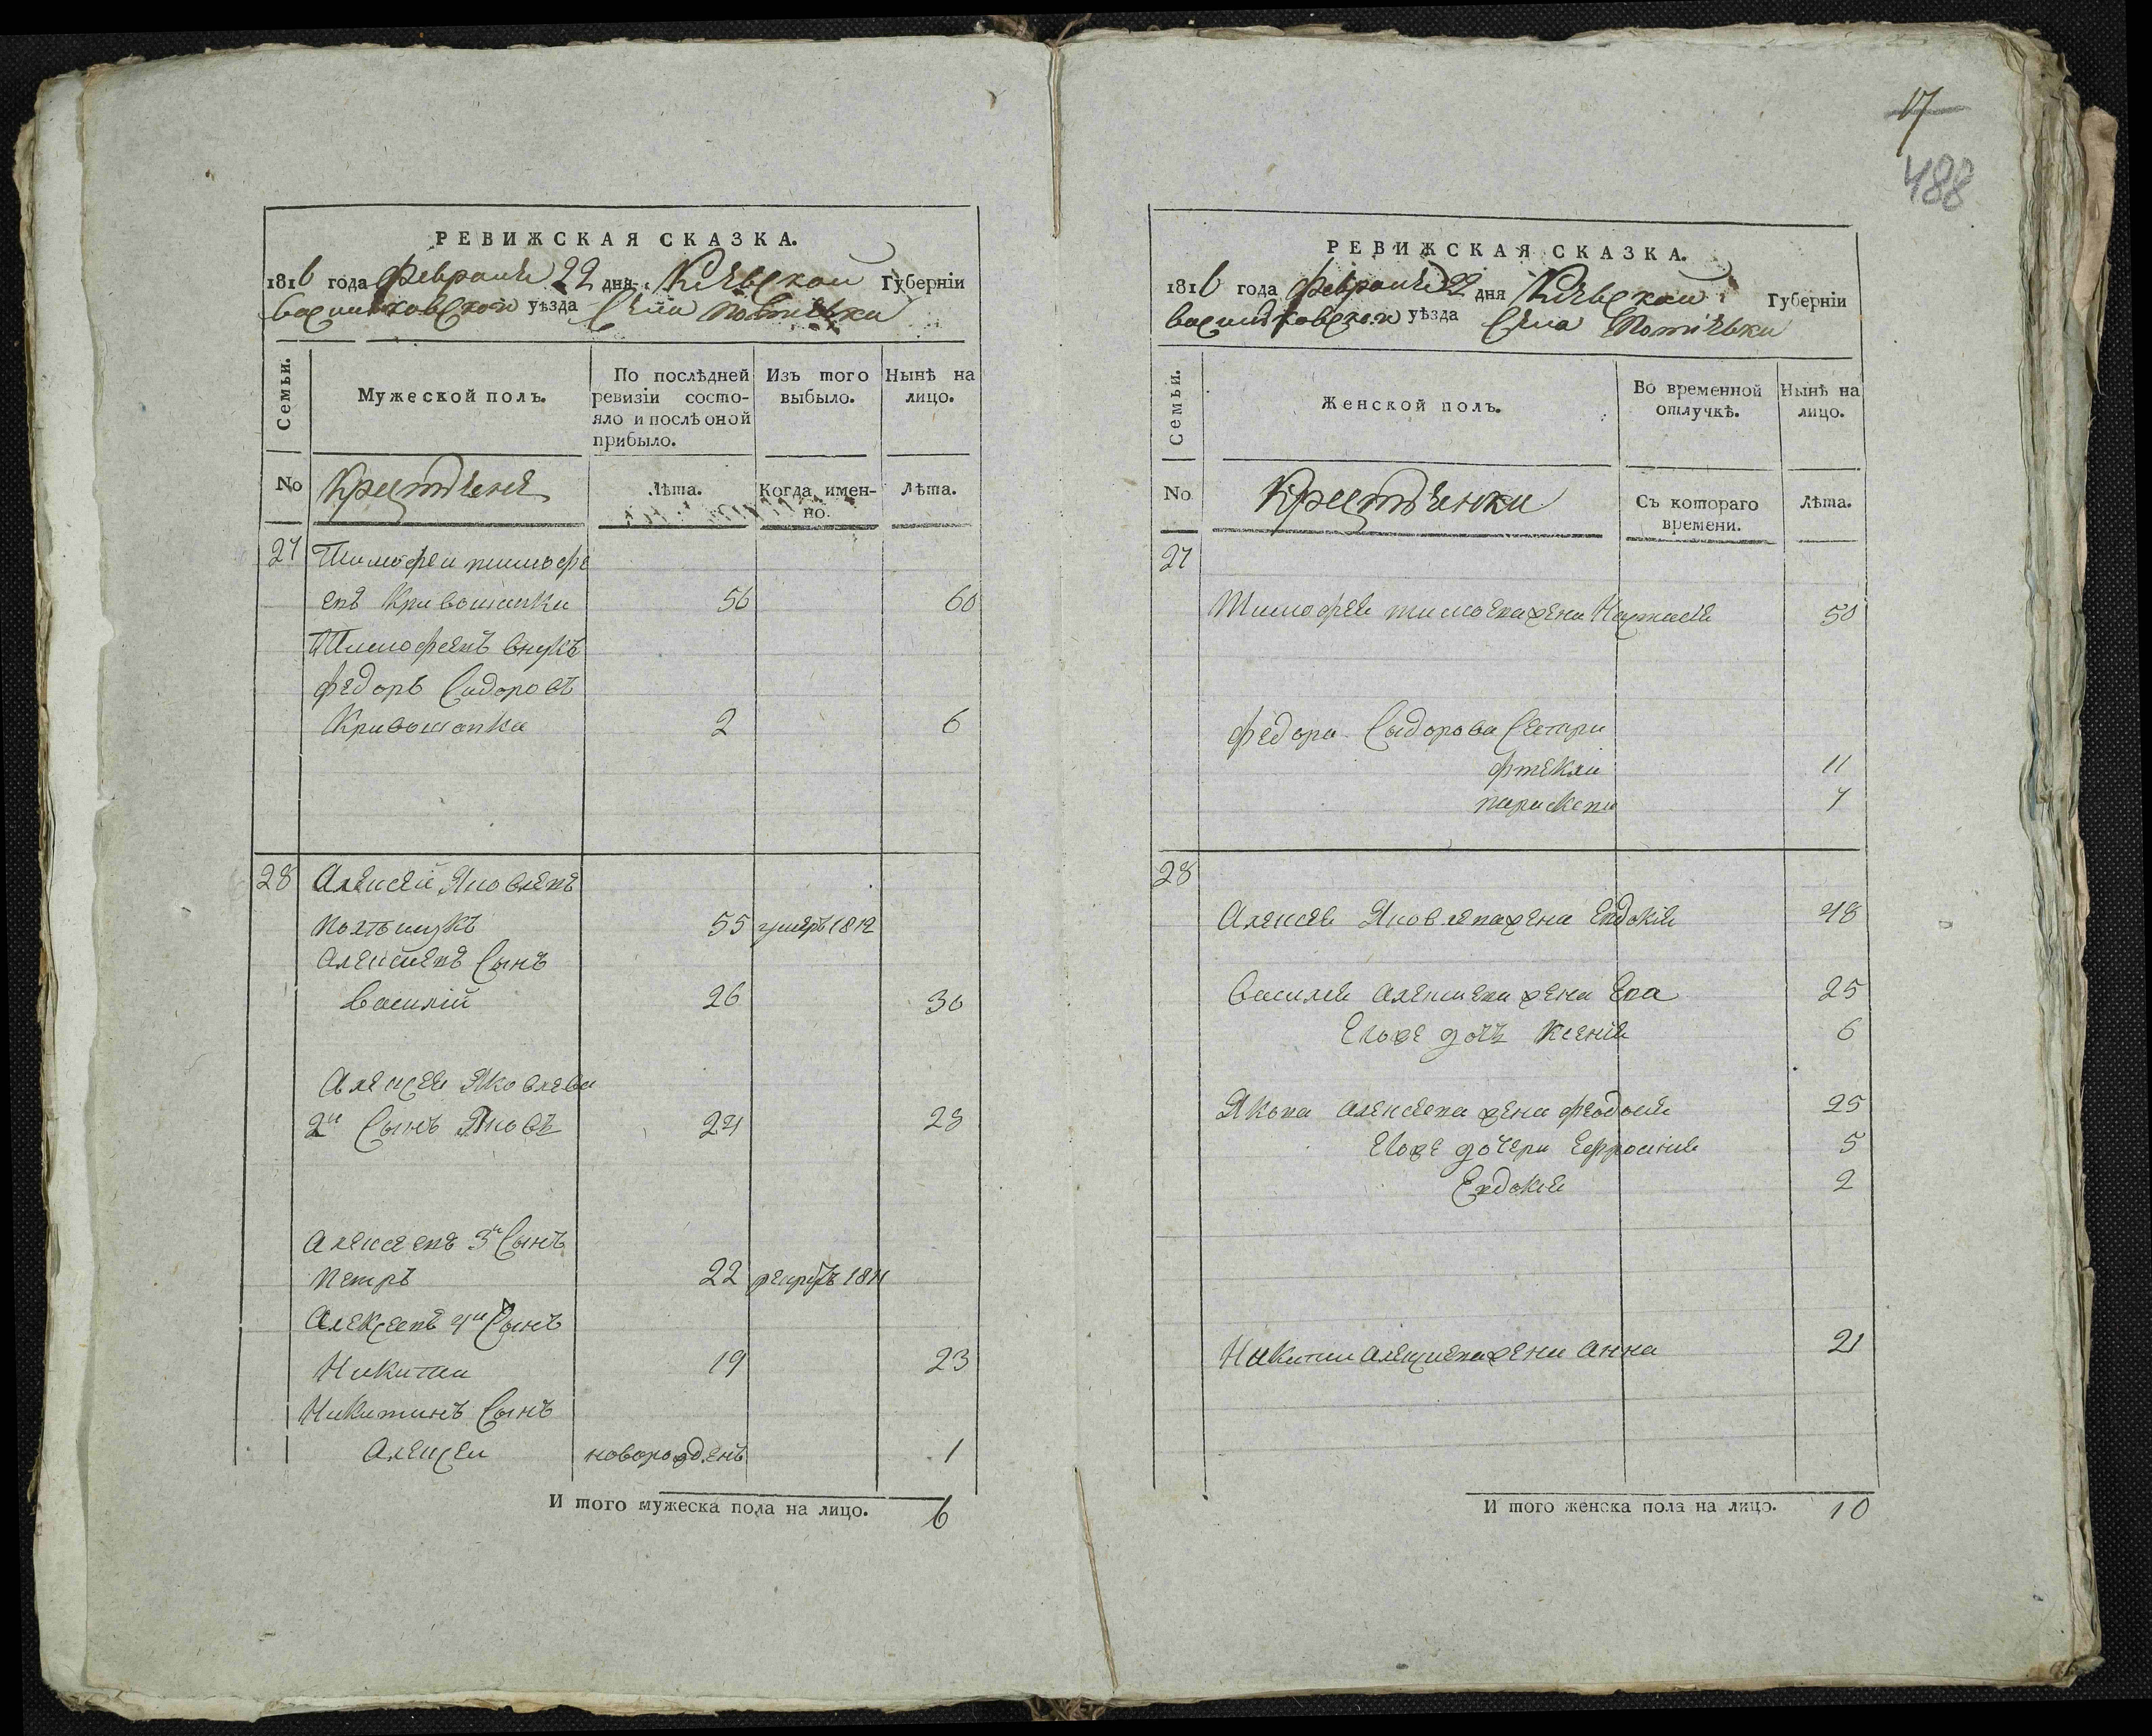 17
488
РЕВИЖСКАЯ СКАЗКА.
1816 года февраля 22 дня Кіевской Губерніи
Васильковской уѣзда Села
Семьи.
Мужеской полъ.
По послѣдней ревизіи состояло и послѣ оной прибыло.
Изъ того выбыло.
Нынѣ на лицо.
No
Крестьяне
Лѣта.
Когда именно.
Лѣта.
27 Тимофей тимофе
евъ Кривошапка 56 60
Тимофеевъ внукъ
федоръ Сидоровъ
Кривошапка 2 6
28 Алексей Яковлевъ
55 умеръ 1812
Алексеевъ Сынъ
василій 26 30
Алексея Яковлева
2й Сынъ Яковъ 24 28
Алексеевъ 3й Сынъ
Петръ 22 рекрутъ 1811
Алексеевъ 4й Сынъ
Никита 19 23
Никитинъ Сынъ
Алексей новорожденъ 1
И того мужеска пола на лицо. 6
РЕВИЖСКАЯ СКАЗКА.
1816 года февраля 22 дня Кіевской Губерніи
Васильковской уѣзда Села
Семьи.
Женской полъ.
Во временной отлучкѣ.
Нынѣ на лицо.
No
Крестьянки
Съ котораго времени.
Лѣта.
27
Тимофея жена Настасія 50
федора Сыдорова Сестры
11
параскева 7
28
Алексея Яковлева жена Евдокія 48
Василия Алексиева жена Ева 25
Егоже дочь Ксенія 6
Якова Алексеева жена феодосия 25
Егоже дочери Ефросиния 5
Евдокия 2
Никиты Алексиева жена Анна 21
И того женска пола на лицо. 10